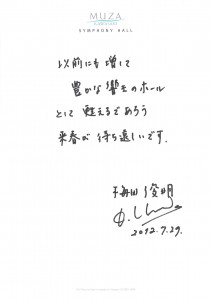 MUZA
KAWASAKI
SYMPHONY HALL
以前にも増して
豊かな響きのホール
として甦えるであろう
来春が待ち遠しいです。
梅田俊明
2012.7.29.